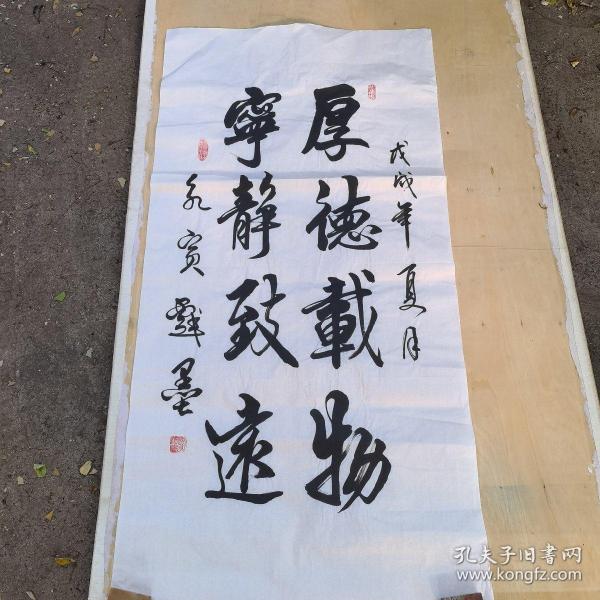 戊戌年夏月
厚德載物
寧静致遠
永寅戲墨
孔夫子旧书网
www.kongfz.com